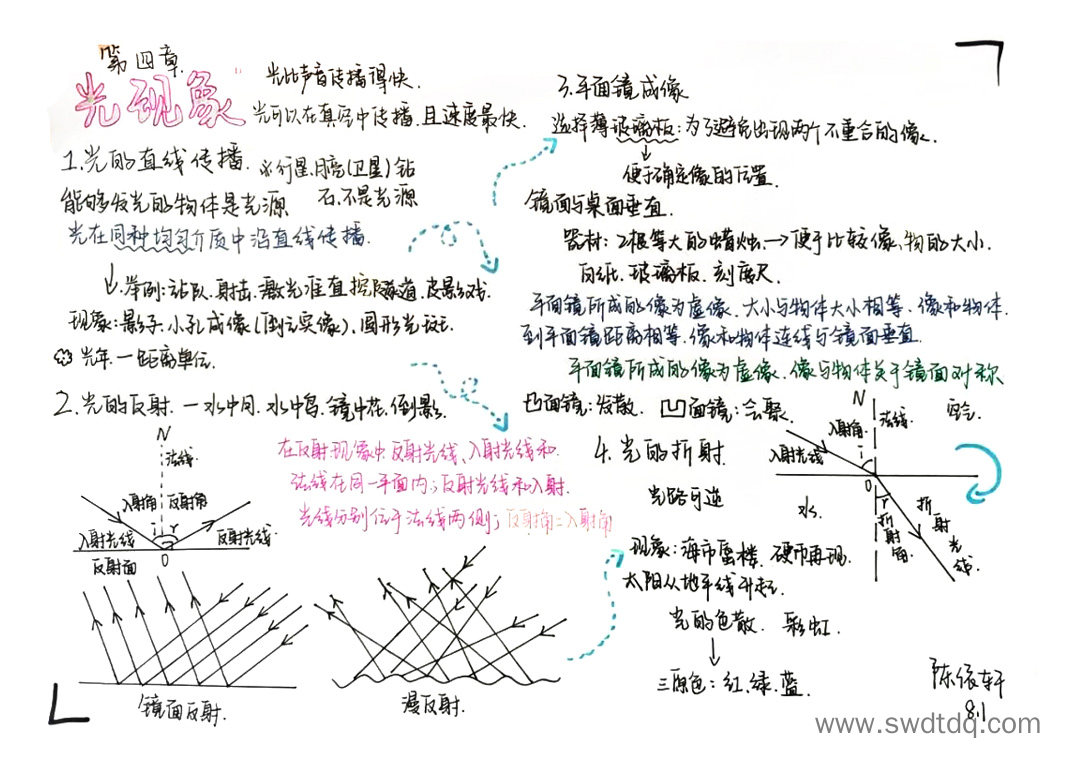 第四章
光现象
光比声音传播得快.
光可以在真空中传播.且速度最快.
1.光的直线传播.
※行星.月亮(卫星)钻
石.不是光源
能够发光的物体是光源
光在同种均匀介质中沿直线传播.
举例:站队.射击.激光准直挖隧道.皮影戏.
现象:影子.小孔成像(倒立实像).圆形光斑.
光年—距离单位.
2.光的反射.—水中月.水中鸟.镜中花.倒影.
N
法线
入射角
反射角
i
r
入射光线
反射光线.
反射面
O
在反射现象中反射光线、入射光线和
法线在同一平面内;反射光线和入射.
光线分别位于法线两侧;反射角=入射角
镜面反射.
漫反射.
3.平面镜成像
选择薄玻璃板:为了避免出现两个不重合的像.
便于确定像的位置.
镜面与桌面垂直.
器材:2根等大的蜡烛.→便于比较像、物的大小.
白纸.玻璃板.刻度尺.
平面镜所成的像为虚像.大小与物体大小相等.像和物体.
到平面镜距离相等.像和物体连线与镜面垂直.
平面镜所成的像为虚像.像与物体关于镜面对称
凸面镜:发散. 凹面镜:会聚.
4.光的折射.
光路可逆
N
法线.
空气.
入射角.
入射光线
i
O
r
水.
折射角.
折射光线.
现象:海市蜃楼.硬币再现.
太阳从地平线升起.
光的色散. 彩虹.
三原色:红.绿.蓝.
陈依轩
8.1
www.swdtdq.com